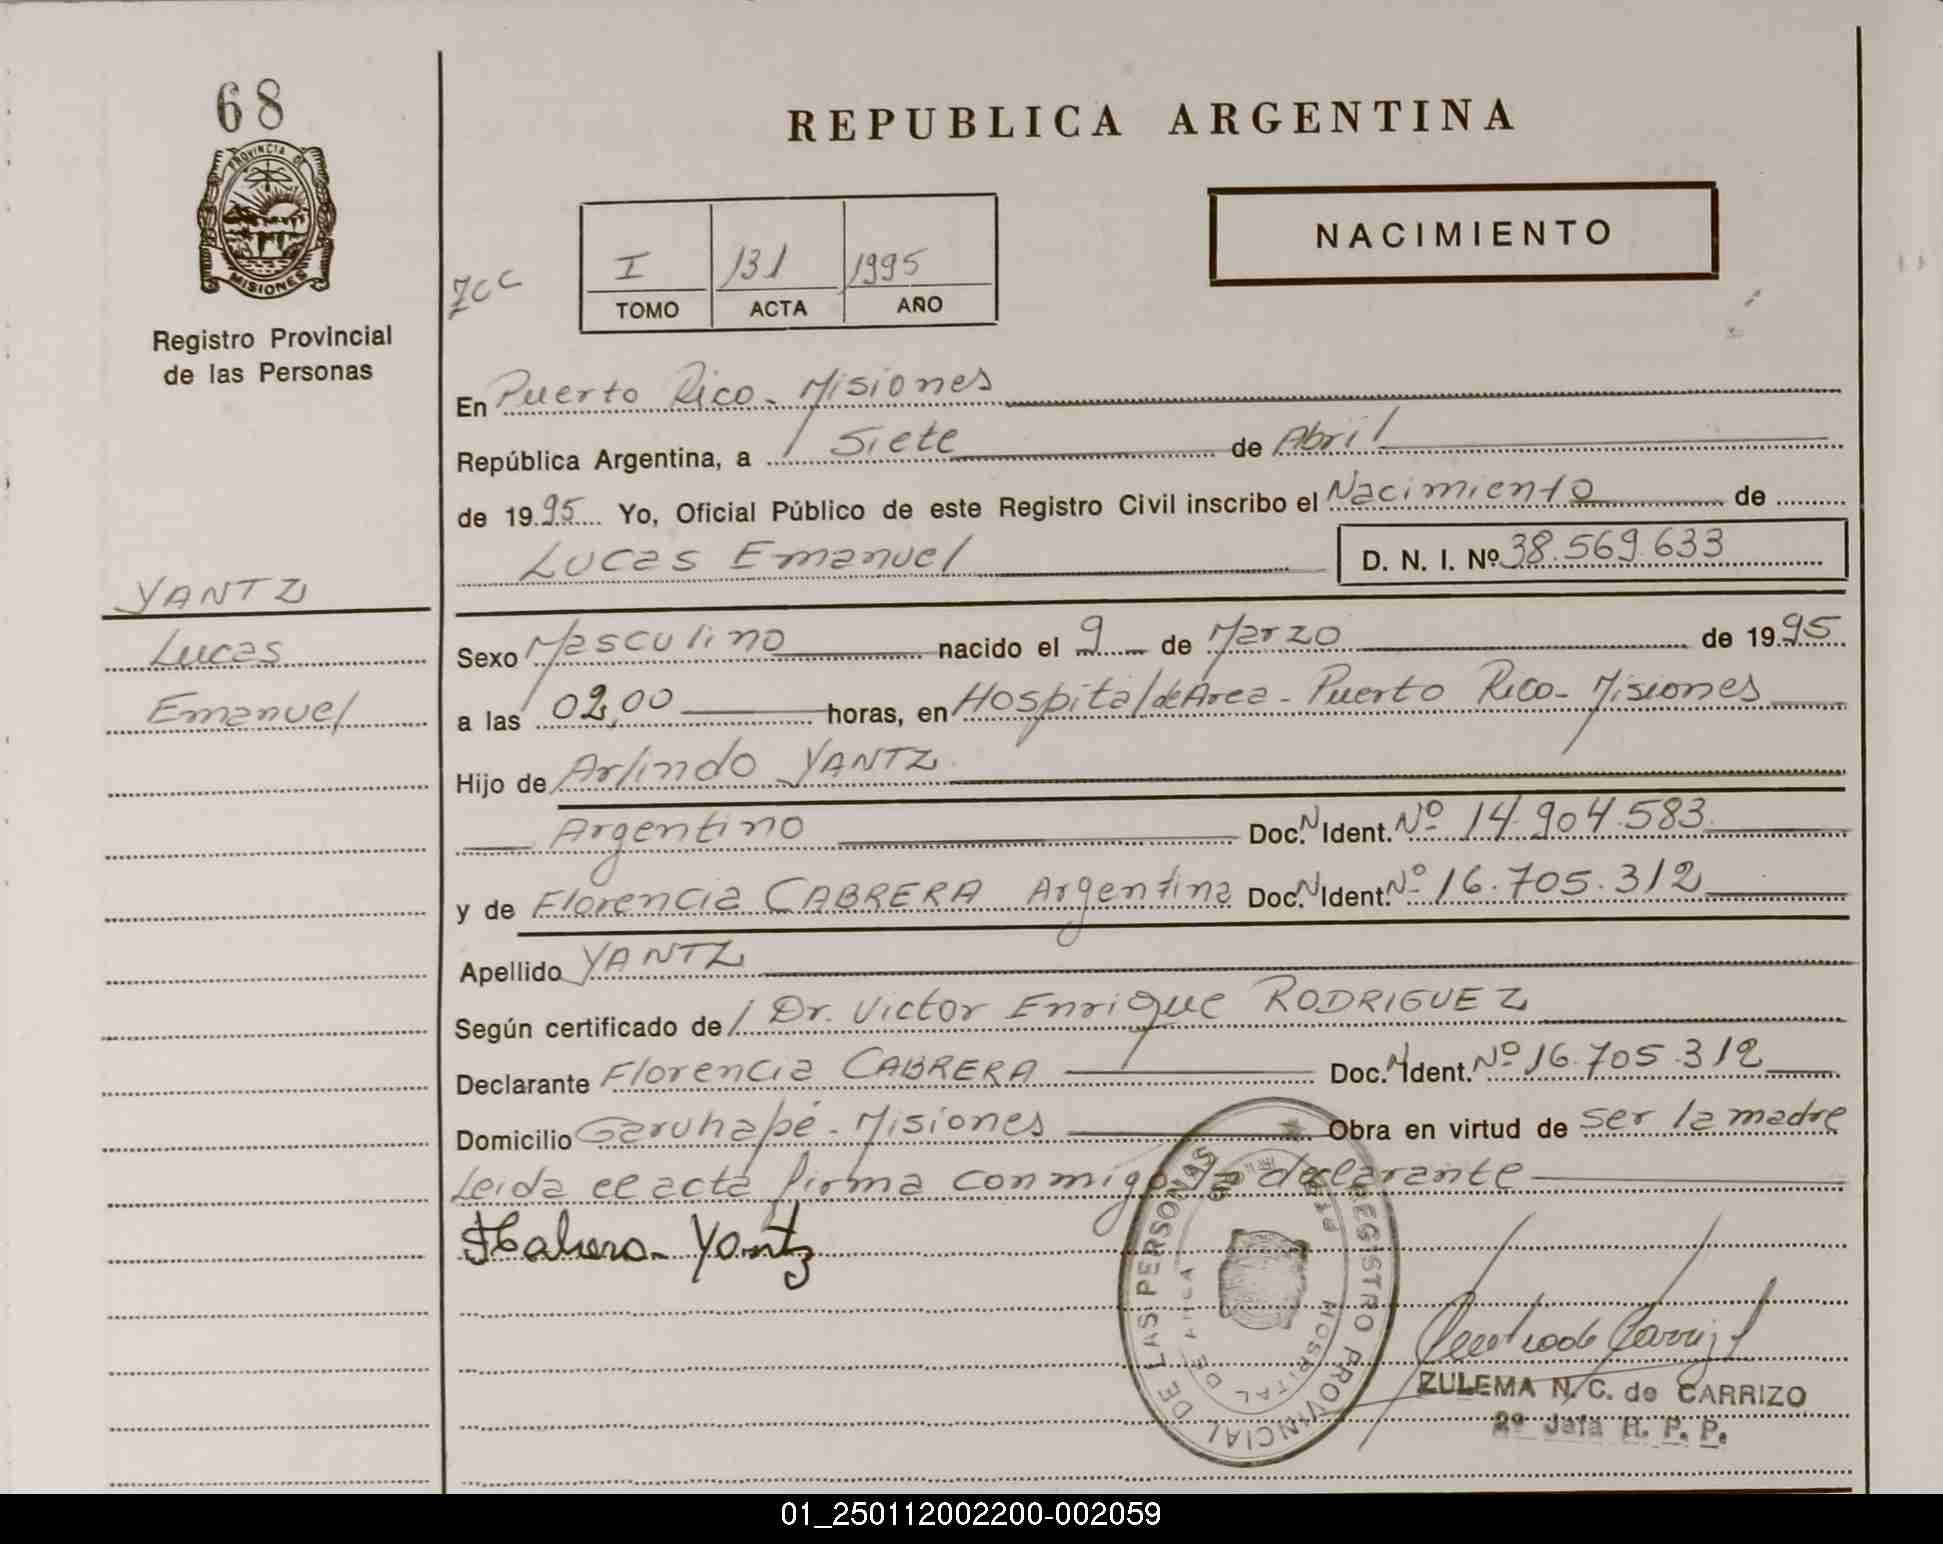 68
PROVINCIA DE
MISIONES
Registro Provincial
de las Personas
REPUBLICA ARGENTINA
NACIMIENTO
I 131 1995
TOMO ACTA AÑO
En Puerto Rico - Misiones
República Argentina, a Siete de Abril
de 1995 Yo, Oficial Público de este Registro Civil inscribo el Nacimiento de
Lucas Emanuel D. N. I. Nº 38.569.633
YANTZ
Lucas
Emanuel
Sexo Masculino nacido el 9 de Marzo de 1995
a las 02,00 horas, en Hospital de Area - Puerto Rico - Misiones
Hijo de Arlindo YANTZ
Argentino Doc. N Ident. Nº 14.904.583
y de Florencia CABRERA Argentina Doc. N Ident. Nº 16.705.312
Apellido YANTZ
Según certificado de Dr. Victor Enrique RODRIGUEZ
Declarante Florencia CABRERA Doc. N Ident. Nº 16.705.312
Domicilio Garuhapé - Misiones Obra en virtud de ser la madre
Leida el acta firma conmigo la declarante
Yantz
REGISTRO PROVINCIAL DE LAS PERSONAS
HOSPITAL DE AREA
ZULEMA N. C. de CARRIZO
2º Jefa H. P. P.
01_250112002200-002059